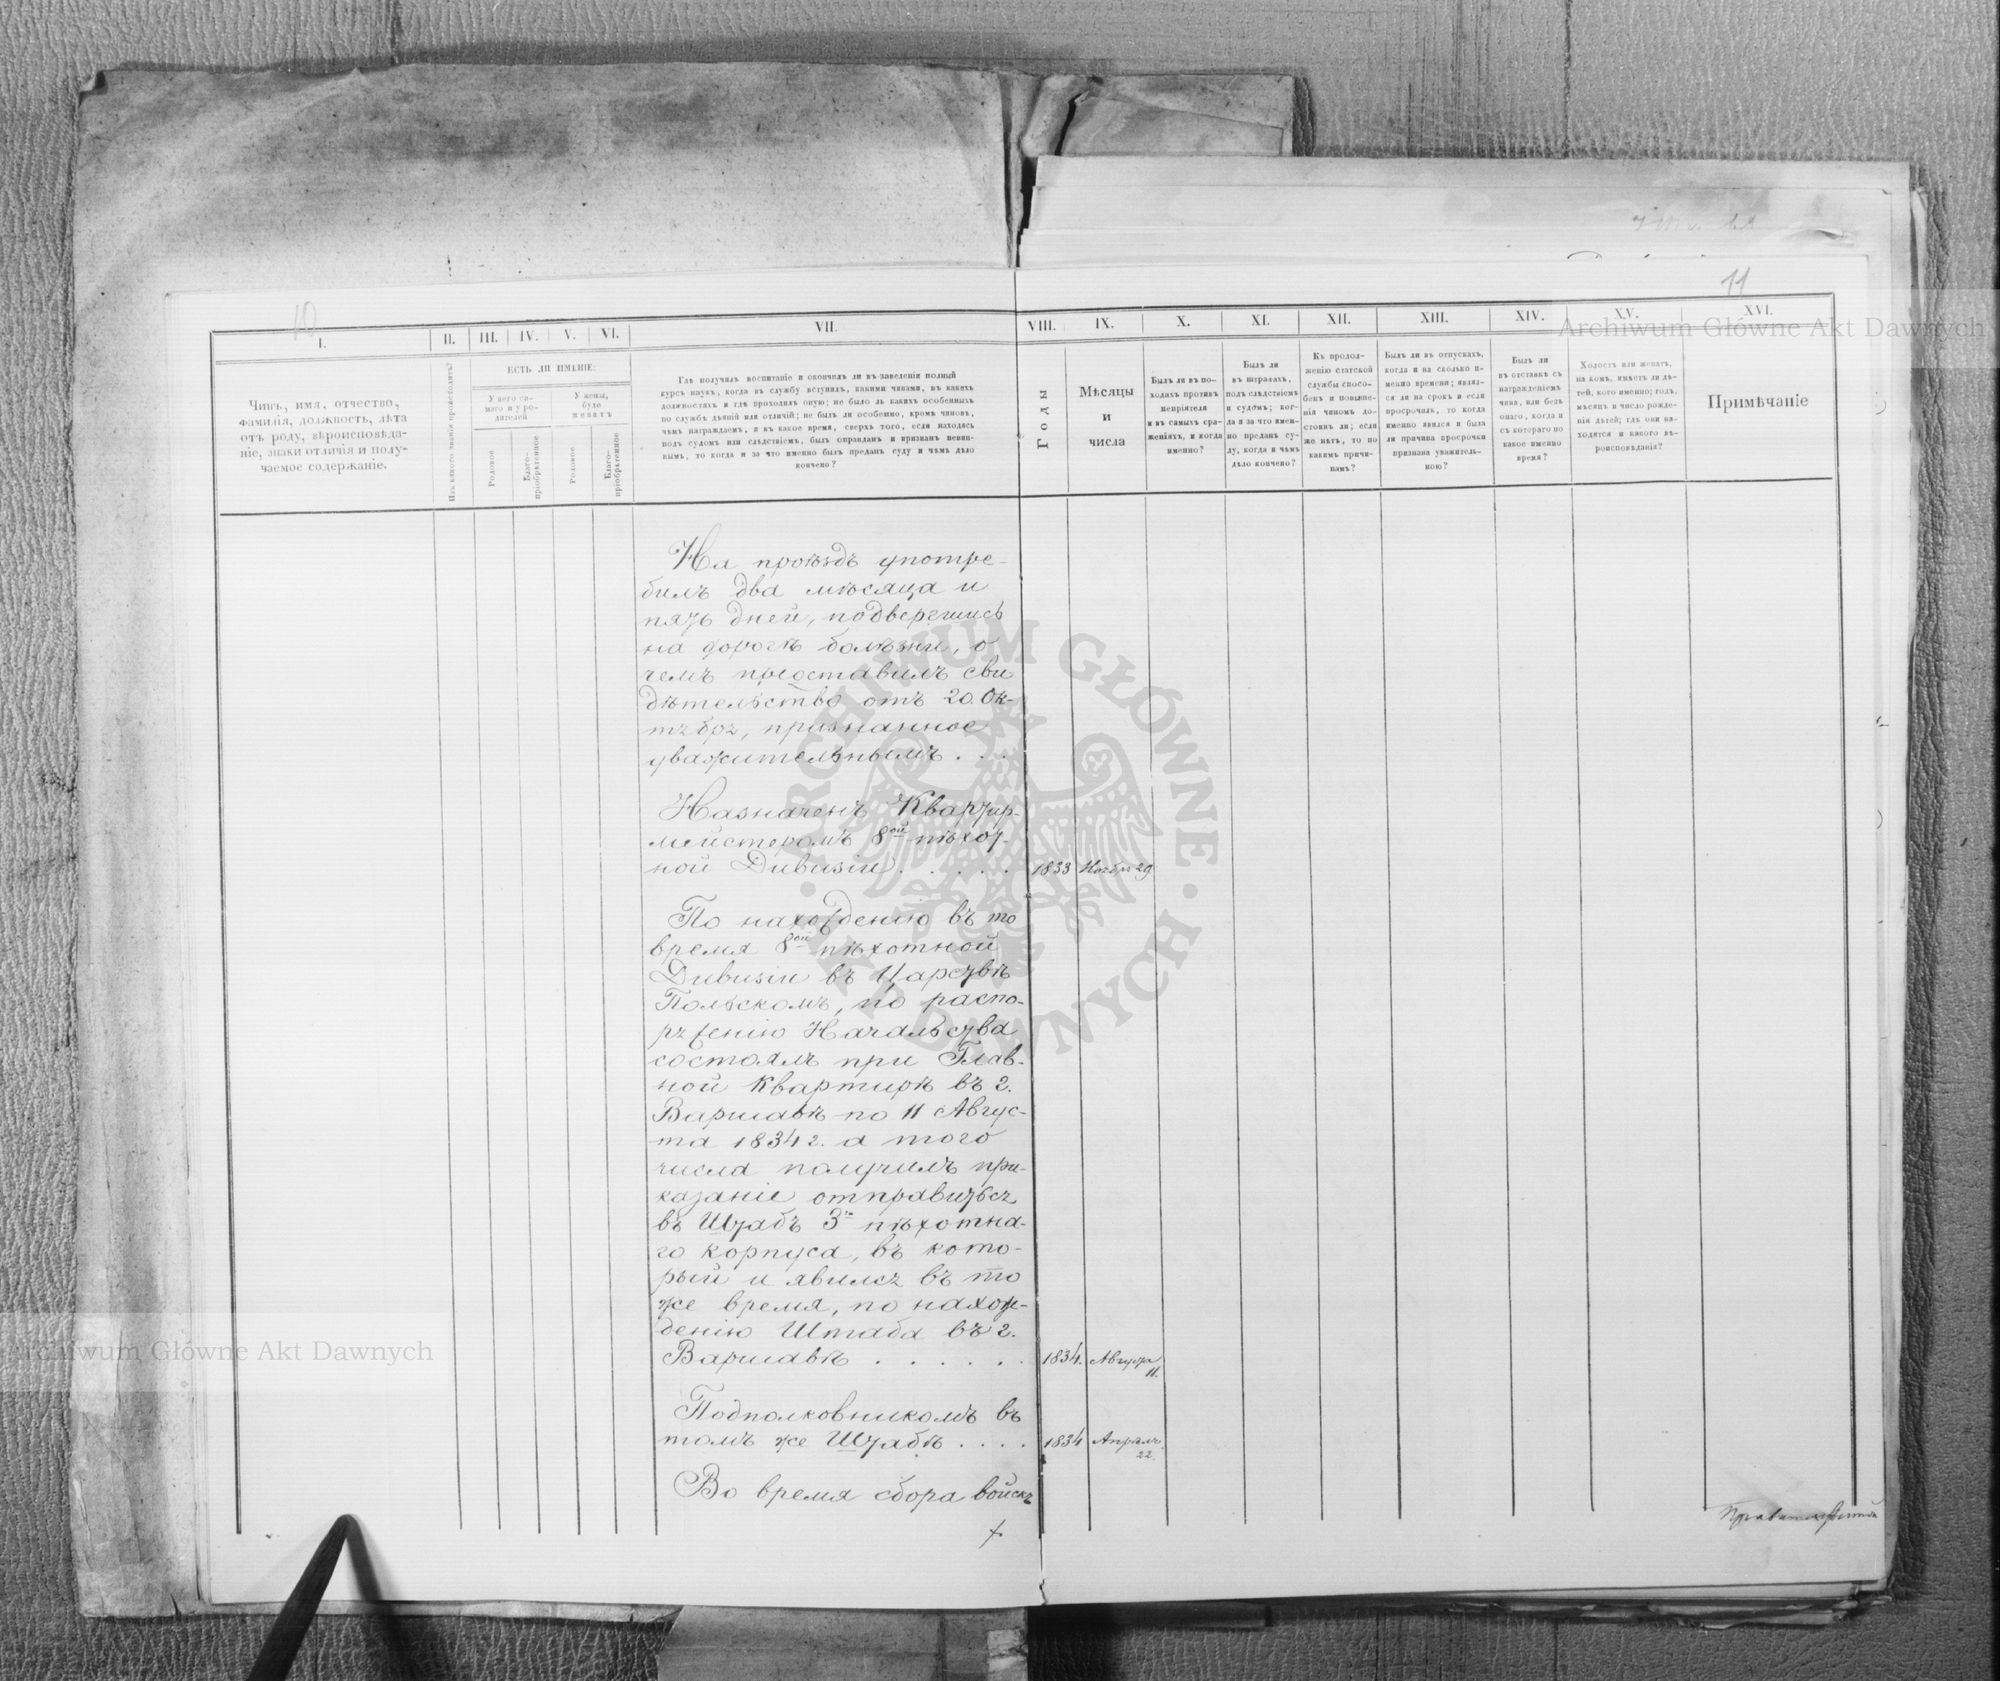 10
11
I.
II.
III.
IV.
V.
VI.
VII.
VIII.
IX.
X.
XI.
XII.
XIII.
XIV.
XV.
XVI.
Чинъ, имя, отчество,
фамилія, должность, лѣта
отъ роду, вѣроисповѣда-
ніе, знаки отличія и полу-
чаемое содержаніе.
Изъ какого званія происходитъ?
ЕСТЬ ЛИ ИМѢНІЕ:
У него са-
маго и у ро-
дителей
У жены,
буде
женатъ
Родовое
Благо-
пріобрѣтенное
Родовое
Благо-
пріобрѣтенное
Гдѣ получилъ воспитаніе и окончилъ ли въ заведеніи полный
курсъ наукъ, когда въ службу вступилъ, какими чинами, въ какихъ
должностяхъ и гдѣ проходилъ оную; не было ль какихъ особенныхъ
по службѣ дѣяній или отличій; не былъ ли особенно, кромѣ чиновъ,
чѣмъ награждаемъ, и въ какое время, сверхъ того, если находясь
подъ судомъ или слѣдствіемъ, былъ оправданъ и признанъ невин-
нымъ, то когда и за что именно былъ преданъ суду и чѣмъ дѣло
кончено?
Годы
Мѣсяцы
и
числа
Былъ ли въ по-
ходахъ противъ
непріятеля
и въ самыхъ сра-
женіяхъ, и когда
именно?
Былъ ли
въ штрафахъ,
подъ слѣдствіемъ
и судомъ; ког-
да и за что имен-
но преданъ су-
ду, когда и чѣмъ
дѣло кончено?
Къ продол-
женію статской
службы спосо-
бенъ и повыше-
нія чиномъ до-
стоинъ ли; если
же нѣтъ, то по
какимъ причи-
намъ?
Былъ ли въ отпускахъ,
когда и на сколько и-
менно времени; являл-
ся ли на срокъ и если
просрочилъ, то когда
именно явился и была
ли причина просрочки
признана уважитель-
ною?
Былъ ли
въ отставкѣ съ
награжденіемъ
чина, или безъ
онаго, когда и
съ котораго по
какое именно
время?
Холостъ или женатъ,
на комъ, имѣетъ ли дѣ-
тей, кого именно; годъ,
мѣсяцъ и число рожде-
нія дѣтей; гдѣ они на-
ходятся и какого вѣ-
роисповѣданія?
Примѣчаніе
На проѣздъ употре-
билъ два мѣсяца и
пять дней, подвергшись
на дорогѣ болѣзни, о
чемъ представилъ сви
дѣтельство отъ 20. Ок-
тября, признанное
уважительнымъ . . .
Назначенъ Квартир-
мейстеромъ 8ой пѣхот-
ной Дивизіи . . . . .
1833 Ноября 29
По нахожденію въ то
время 8ой пѣхотной
Дивизіи въ Царствѣ
Польскомъ, по распо-
ряженію Начальства
состоялъ при Глав-
ной Квартирѣ въ г.
Варшавѣ по 11 Авгус-
та 1834 г. а того
числа получилъ при-
казаніе отправиться
въ Штабъ 3го пѣхотна-
го корпуса, въ кото-
рый и явился въ то
же время, по нахож-
денію Штаба въ г.
Варшавѣ . . . . . .
1834. Августа
11.
Подполковникомъ въ
томъ же Штабѣ . . . .
1834 Апрѣля
22.
Во время сбора войскъ
Archiwum Główne Akt Dawnych
Archiwum Główne Akt Dawnych
ARCHIWUM GŁÓWNE AKT DAWNYCH